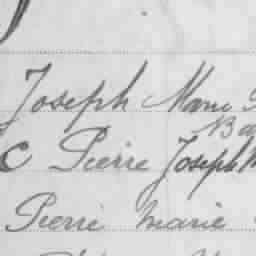 Joseph Marie
Ba
Pierre Joseph M
Pierre Marie